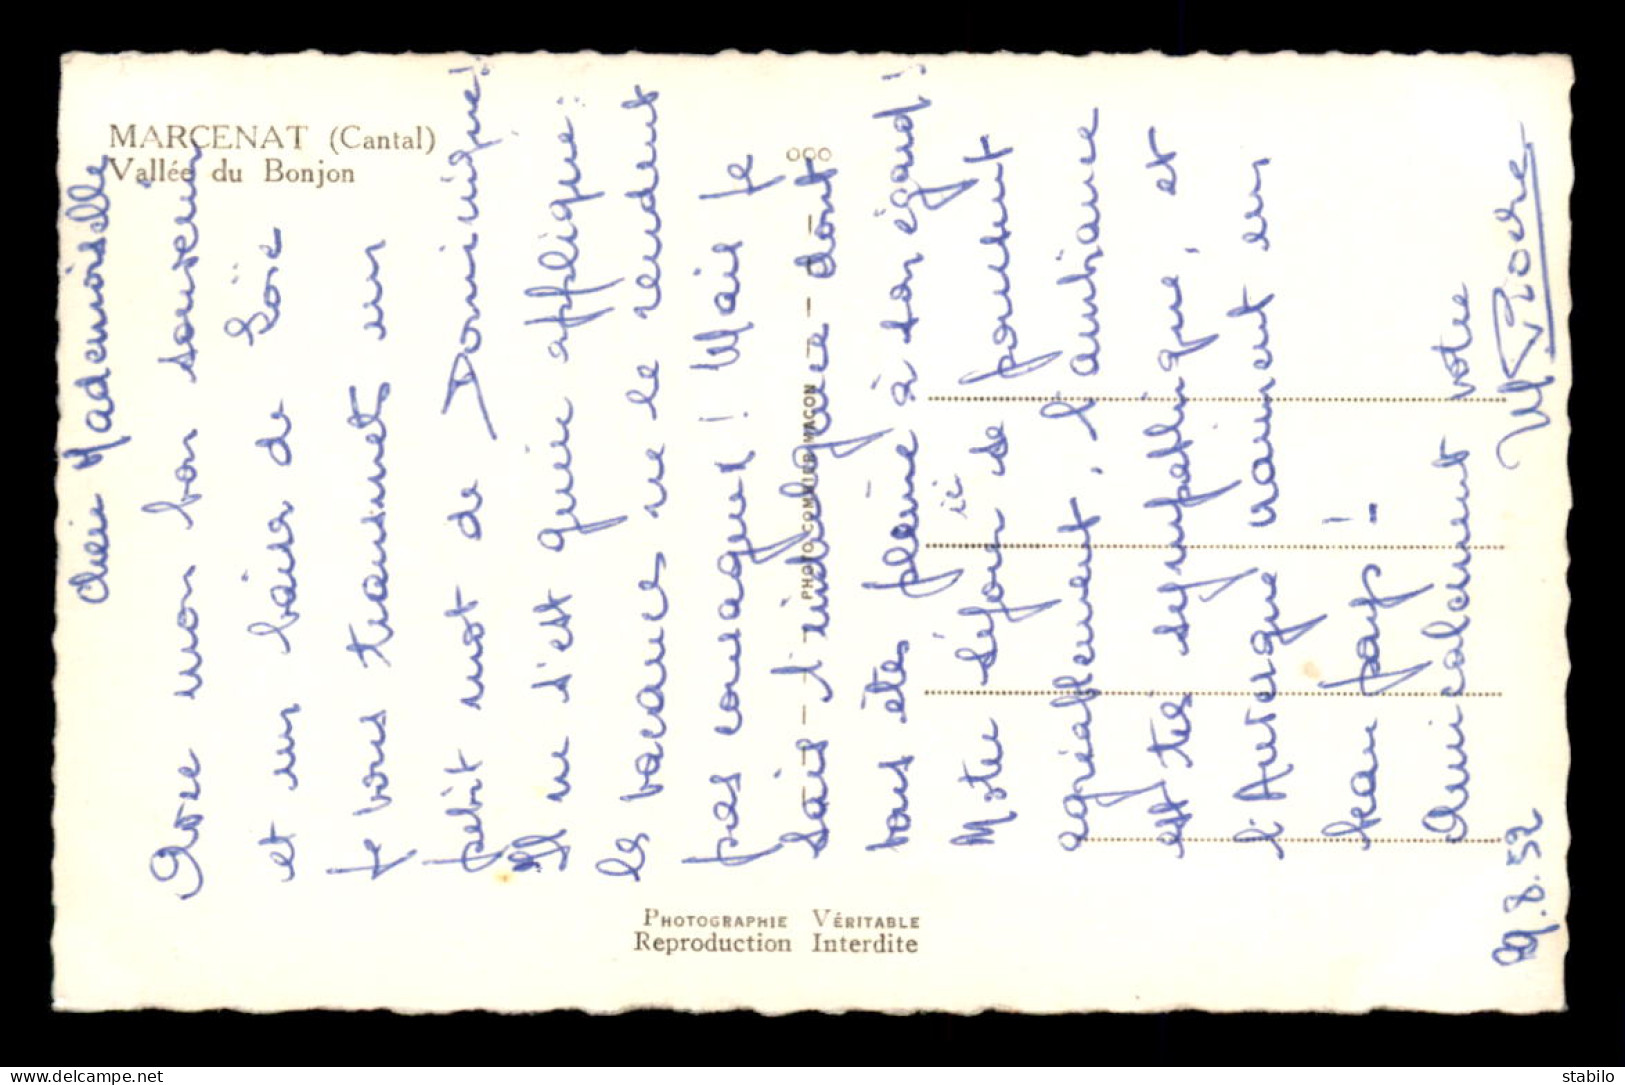 MARCENAT (Cantal)
Vallée du Bonjon
Chère Mademoiselle
Avec mon bon souvenir
et un baiser de Loïc
je vous transmets un
petit mot de Dominique!
Il ne s'est guère appliqué:
les vacances ne le rendent
pas courageux! Mais je
sais l'indulgence dont
vous êtes pleine à son égard!
Notre séjour ici se poursuit
agréablement, l'ambiance
est très sympathique, et
l'Auvergne vraiment un
beau pays!
Amicalement votre
29.8.52
PHOTO COMBIER MACON
PHOTOGRAPHIE VÉRITABLE
Reproduction Interdite
www.delcampe.net
stabilo